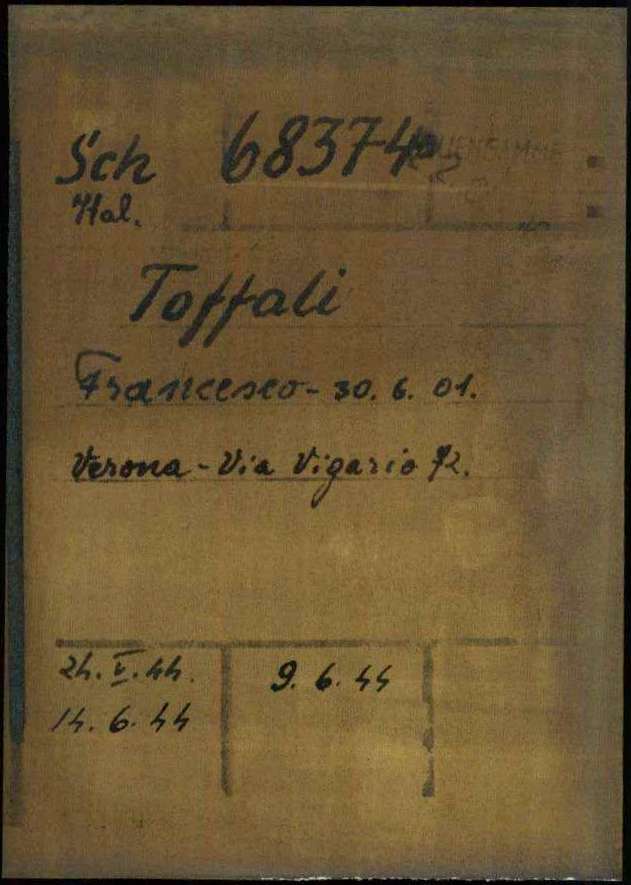 Sch 68374
Ital.
Toffali
Francesco - 30. 6. 01.
Verona - Via Vigasio 72.
24. V. 44. 9. 6. 44
14. 6. 44